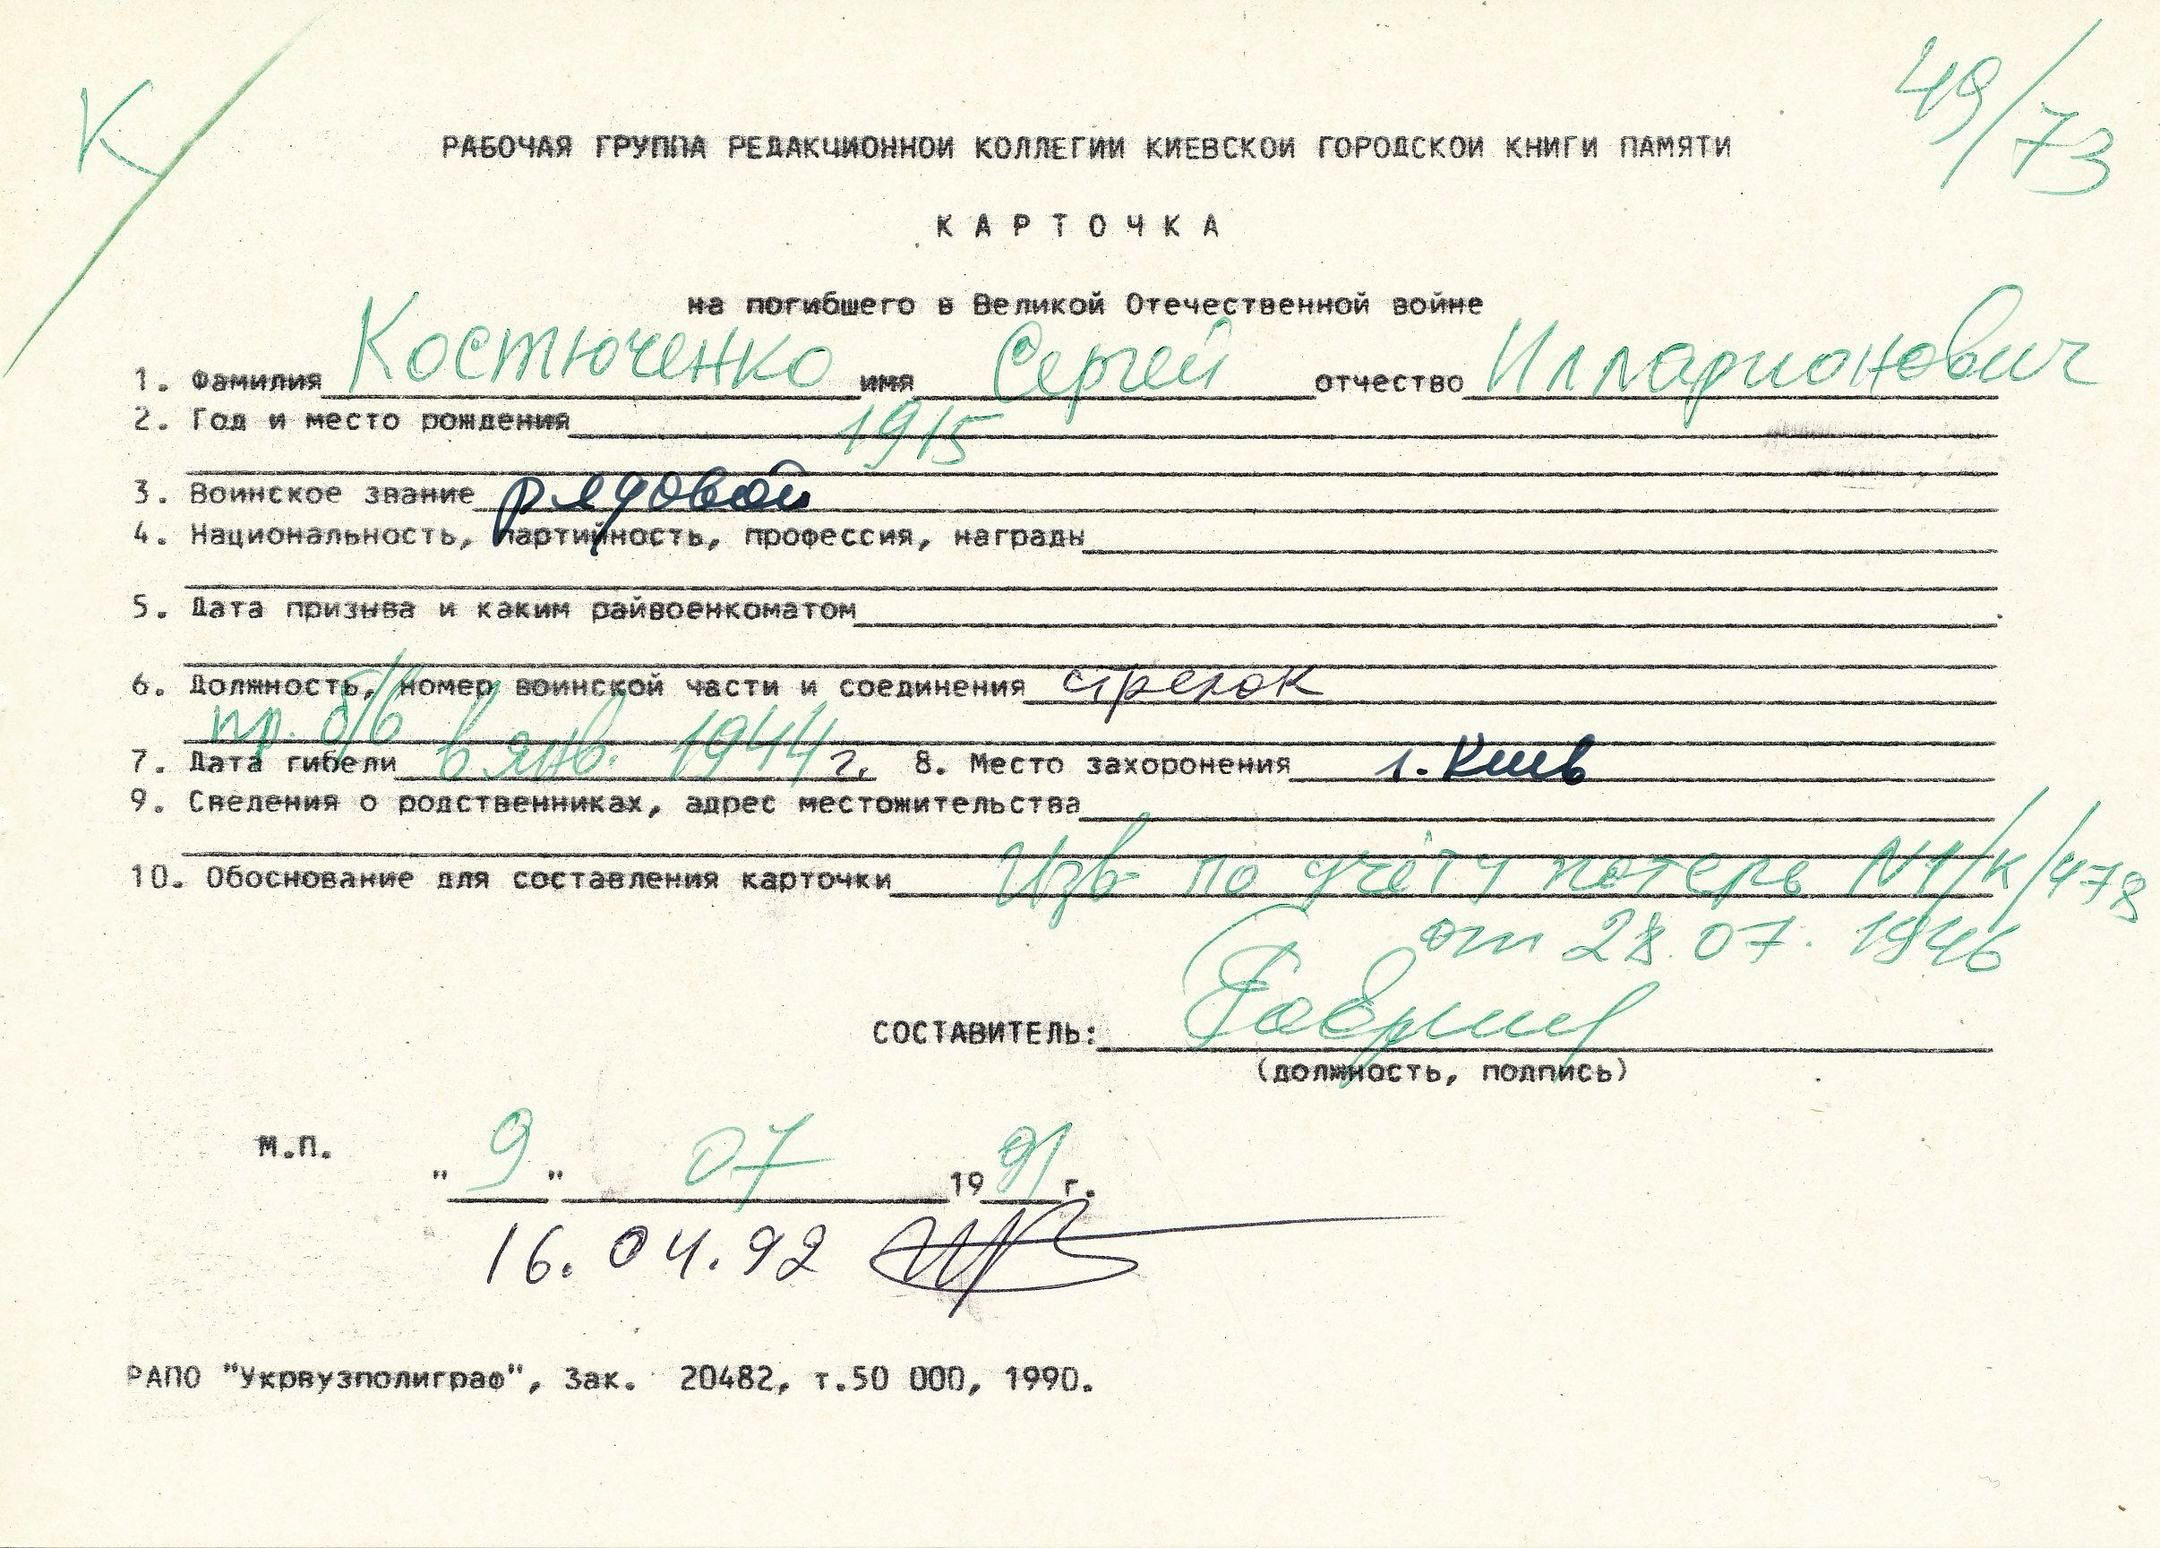 К 49/73
РАБОЧАЯ ГРУППА РЕДАКЦИОННОЙ КОЛЛЕГИИ КИЕВСКОЙ ГОРОДСКОЙ КНИГИ ПАМЯТИ
КАРТОЧКА
на погибшего в Великой Отечественной войне
1. Фамилия Костюченко имя Сергей отчество Илларионович
2. Год и место рождения 1915
3. Воинское звание рядовой
4. Национальность, партийность, профессия, награды
5. Дата призыва и каким райвоенкоматом
6. Должность, номер воинской части и соединения стрелок
пр. б/в
7. Дата гибели в янв. 1944 г. 8. Место захоронения г. Киев
9. Сведения о родственниках, адрес местожительства
10. Обоснование для составления карточки Изв. по учёту потерь N1/К/478
от 28.07.1946
СОСТАВИТЕЛЬ:
(должность, подпись)
М.П.
"9" 07 1991 г.
16.04.92
РАПО "Укрвузполиграф", Зак. 20482, т.50 000, 1990.